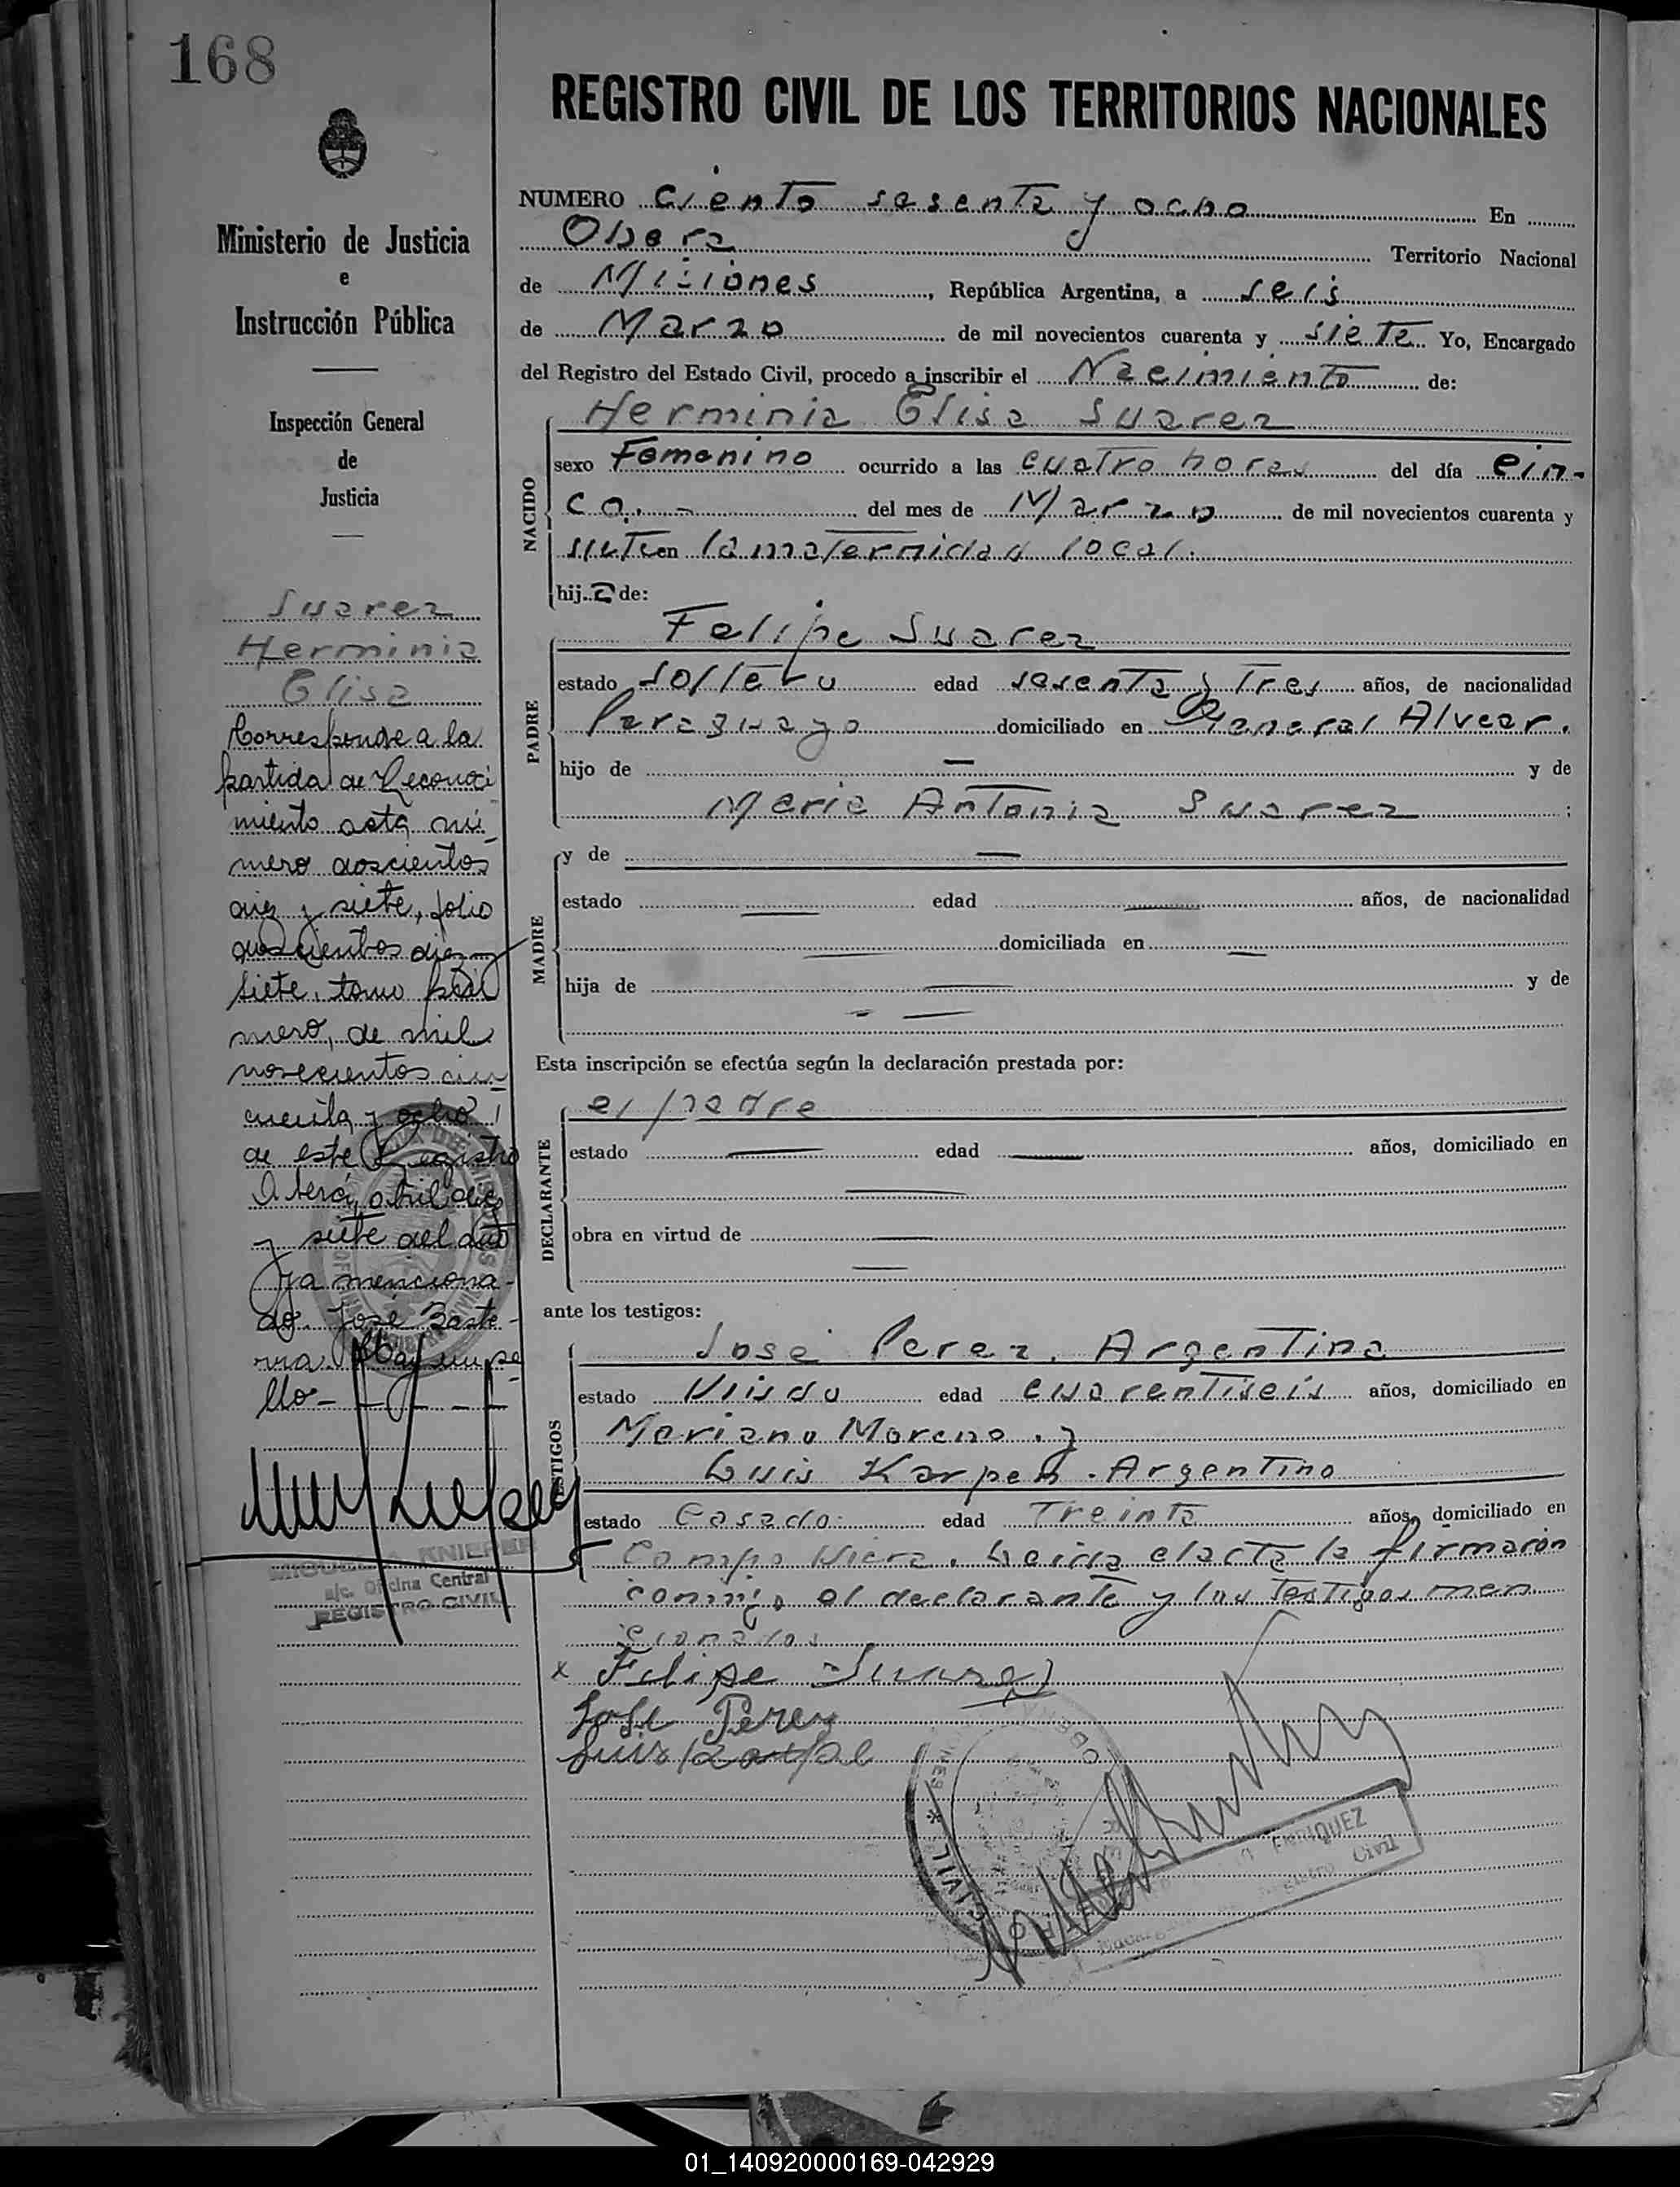 168
REGISTRO CIVIL DE LOS TERRITORIOS NACIONALES
Ministerio de Justicia
e
Instrucción Pública
Inspección General
de
Justicia
Suarez
Herminia
Elisa
Corresponde a la
partida de Reconoci
miento acta nú-
mero doscientos
diez y siete, folio
doscientos diez y
siete, tomo pri
mero, de mil
novecientos cin
cuenta y ocho
de este Registro
Oberá, abril diez
y siete del año
ya menciona-
do. José Baste-
rra. Hay un se
llo-
KNIEPER
a/c. Oficina Central
REGISTRO CIVIL
NUMERO Ciento sesenta y ocho En
Obera Territorio Nacional
de Misiones, República Argentina, a seis
de Marzo de mil novecientos cuarenta y siete Yo, Encargado
del Registro del Estado Civil, procedo a inscribir el Nacimiento de:
NACIDO
Herminia Elisa Suarez
sexo Femenino ocurrido a las cuatro horas del día cin-
co.- del mes de Marzo de mil novecientos cuarenta y
siete en la maternidad local.
hij a de:
PADRE
Felipe Suarez
estado soltero edad sesenta y tres años, de nacionalidad
Paraguayo domiciliado en General Alvear.
hijo de — y de
Maria Antonia Suarez ;
MADRE
y de —
estado — edad — años, de nacionalidad
— domiciliada en —
hija de — y de
- —
Esta inscripción se efectúa según la declaración prestada por:
DECLARANTE
el padre
estado — edad — años, domiciliado en
—
obra en virtud de —
—
ante los testigos:
TESTIGOS
José Perez. Argentino
estado Viudo edad cuarentiseis años, domiciliado en
Mariano Moreno. y
Luis Karpen. Argentino
estado Casado edad Treinta años, domiciliado en
Campo Viera. Leida el acta la firmaron
conmigo el declarante y los testigos men
cionados
x Felipe Suarez
José Perez
Luis
CIVIL
OBERA
ENRIQUEZ
Registro Civil
01_140920000169-042929